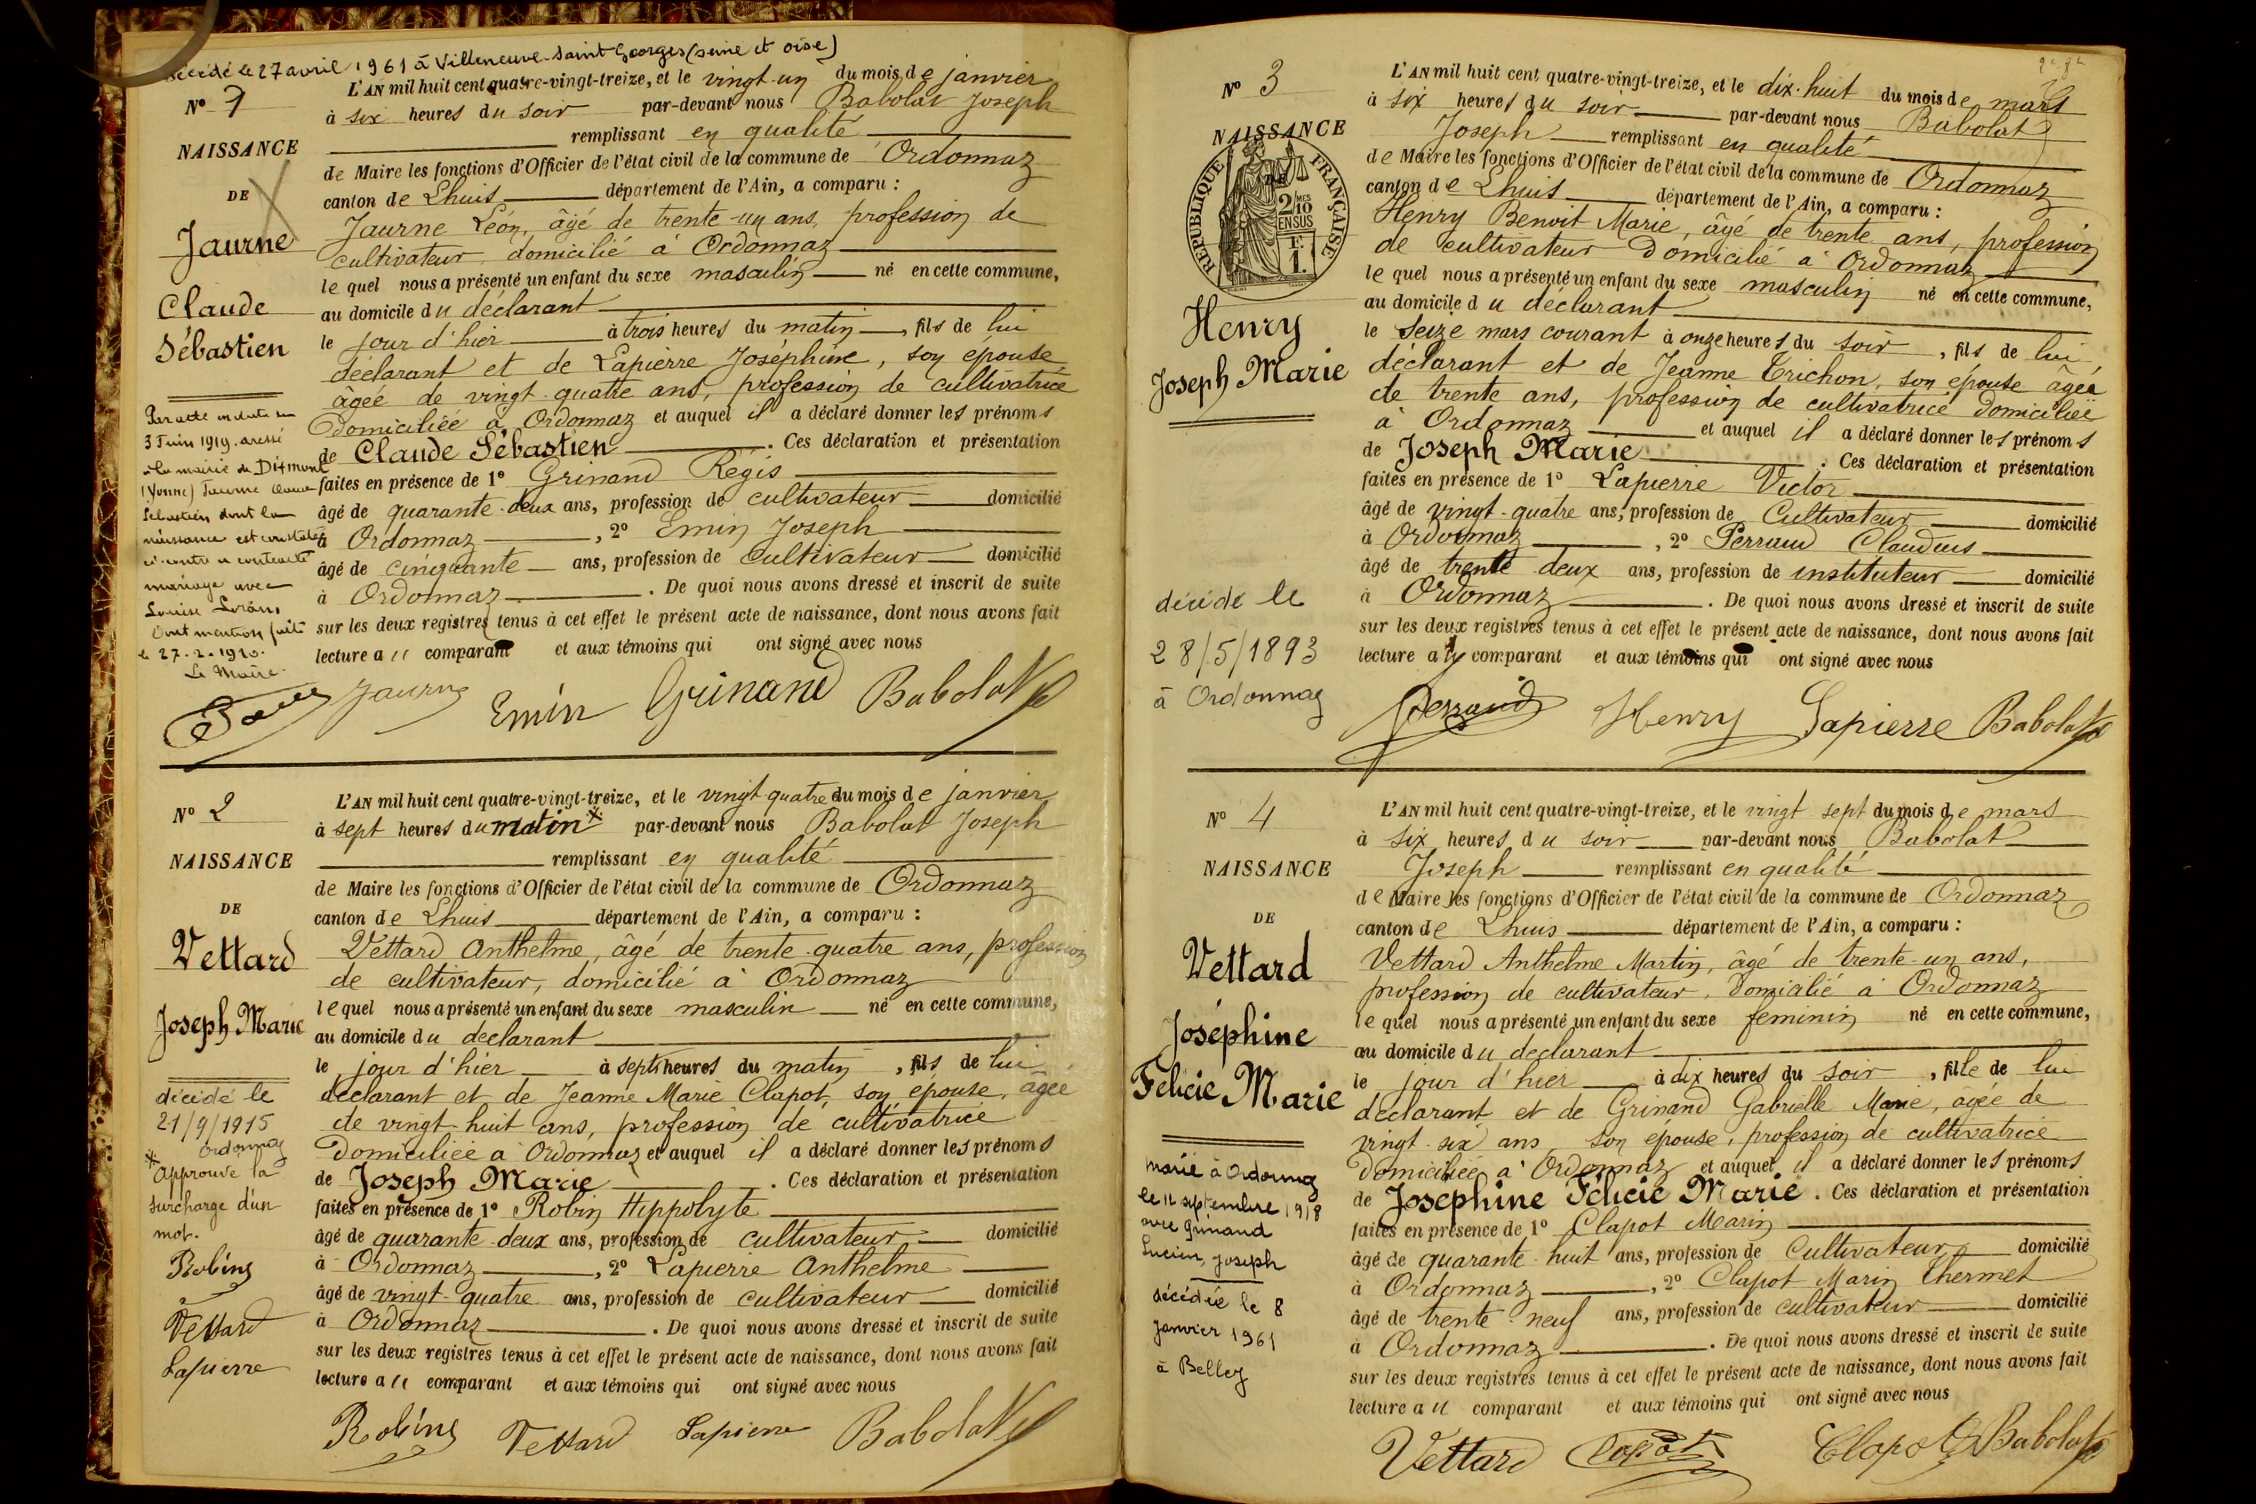 décédé le 27 avril 1961 à Villeneuve-Saint Georges (seine et oise)
N° 1
NAISSANCE
DE
Jaurne
Claude
Sébastien
Par acte en date du
3 Juin 1919. dressé
à la mairie de Dixmont
(Yonne) Jaurne Claude
Sébastien dont la
naissance est constatée
ci-contre a contracté
mariage avec
Louise
Dont mention faite
le 27.2.1920.
Le Maire.
L'AN mil huit cent quatre-vingt-treize, et le vingt-un du mois de janvier
à six heures du soir par-devant nous Babolat Joseph
remplissant en qualité
de Maire les fonctions d'Officier de l'état civil de la commune de Ordonnaz
canton de Lhuis département de l'Ain, a comparu :
Jaurne Léon, âgé de trente-un ans, profession de
cultivateur domicilié à Ordonnaz
lequel nous a présenté un enfant du sexe masculin né en cette commune,
au domicile du déclarant
le jour d'hier à trois heures du matin, fils de lui
déclarant et de Lapierre Joséphine, son épouse
âgée de vingt-quatre ans, profession de cultivatrice
domiciliée à Ordonnaz et auquel il a déclaré donner les prénoms
de Claude Sébastien. Ces déclaration et présentation
faites en présence de 1° Grinand Régis
âgé de quarante-deux ans, profession de cultivateur domicilié
à Ordonnaz, 2° Emin Joseph
âgé de cinquante ans, profession de cultivateur domicilié
à Ordonnaz. De quoi nous avons dressé et inscrit de suite
sur les deux registres tenus à cet effet le présent acte de naissance, dont nous avons fait
lecture au comparant et aux témoins qui ont signé avec nous
Jaurne Emin Grinand Babolat
N° 2
NAISSANCE
DE
Vettard
Joseph Marie
décédé le
21/9/1915
Ordonnaz
* Approuvé la
surcharge d'un
mot.
Robin
Vettard
Lapierre
L'AN mil huit cent quatre-vingt-treize, et le vingt-quatre du mois de janvier
à sept heures du matin * par-devant nous Babolat Joseph
remplissant en qualité
de Maire les fonctions d'Officier de l'état civil de la commune de Ordonnaz
canton de Lhuis département de l'Ain, a comparu :
Vettard Anthelme, âgé de trente-quatre ans, profession
de cultivateur, domicilié à Ordonnaz
lequel nous a présenté un enfant du sexe masculin né en cette commune,
au domicile du déclarant
le jour d'hier à sept heures du matin, fils de lui
déclarant et de Jeanne Marie Clapot son épouse, âgée
de vingt-huit ans, profession de cultivatrice
domiciliée à Ordonnaz et auquel il a déclaré donner les prénoms
de Joseph Marie. Ces déclaration et présentation
faites en présence de 1° Robin Hippolyte
âgé de quarante-deux ans, profession de cultivateur domicilié
à Ordonnaz, 2° Lapierre Anthelme
âgé de vingt-quatre ans, profession de cultivateur domicilié
à Ordonnaz. De quoi nous avons dressé et inscrit de suite
sur les deux registres tenus à cet effet le présent acte de naissance, dont nous avons fait
lecture au comparant et aux témoins qui ont signé avec nous
Robin Vettard Lapierre Babolat
N° 3
NAISSANCE
RÉPUBLIQUE FRANÇAISE
2/10MES
EN SUS
1F.
1.
Henry
Joseph Marie
décédé le
28/5/1893
à Ordonnaz
L'AN mil huit cent quatre-vingt-treize, et le dix-huit du mois de mars
à six heures du soir par-devant nous Babolat
Joseph remplissant en qualité
de Maire les fonctions d'Officier de l'état civil de la commune de Ordonnaz
canton de Lhuis département de l'Ain, a comparu :
Henry Benoit Marie, âgé de trente ans, profession
de cultivateur domicilié à Ordonnaz
lequel nous a présenté un enfant du sexe masculin né en cette commune,
au domicile du déclarant
le seize mars courant à onze heures du soir, fils de lui
déclarant et de Jeanne Trichon, son épouse âgée
de trente ans, profession de cultivatrice domiciliée
à Ordonnaz et auquel il a déclaré donner les prénoms
de Joseph Marie. Ces déclaration et présentation
faites en présence de 1° Lapierre Victor
âgé de vingt-quatre ans, profession de Cultivateur domicilié
à Ordonnaz, 2° Perraud Claudius
âgé de trente deux ans, profession de instituteur domicilié
à Ordonnaz. De quoi nous avons dressé et inscrit de suite
sur les deux registres tenus à cet effet le présent acte de naissance, dont nous avons fait
lecture au comparant et aux témoins qui ont signé avec nous
Perraud Henry Lapierre Babolat
N° 4
NAISSANCE
DE
Vettard
Joséphine
Félicie Marie
mariée à Ordonnaz
le 12 septembre 1918
avec Grinand
Lucien, Joseph
décédée le 8
janvier 1961
à Belley
L'AN mil huit cent quatre-vingt-treize, et le vingt sept du mois de mars
à six heures du soir par-devant nous Babolat
Joseph remplissant en qualité
de Maire les fonctions d'Officier de l'état civil de la commune de Ordonnaz
canton de Lhuis département de l'Ain, a comparu :
Vettard Anthelme Martin, âgé de trente-un ans,
profession de cultivateur, domicilié à Ordonnaz
lequel nous a présenté un enfant du sexe feminin né en cette commune,
au domicile du declarant
le jour d'hier à dix heures du soir, fille de lui
déclarant et de Grinand Gabrielle Marie, âgée de
vingt-six ans son épouse, profession de cultivatrice
domiciliée à Ordonnaz et auquel il a déclaré donner les prénoms
de Joséphine Félicie Marie. Ces déclaration et présentation
faites en présence de 1° Clapot Marin
âgé de quarante-huit ans, profession de Cultivateur domicilié
à Ordonnaz, 2° Clapot Marin Thermet
âgé de trente-neuf ans, profession de cultivateur domicilié
à Ordonnaz. De quoi nous avons dressé et inscrit de suite
sur les deux registres tenus à cet effet le présent acte de naissance, dont nous avons fait
lecture au comparant et aux témoins qui ont signé avec nous
Vettard Clapot Clapot Babolat